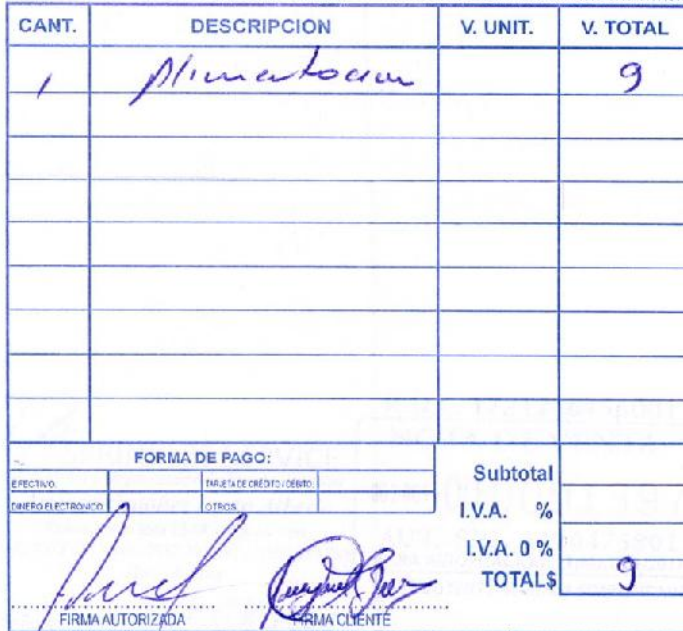 CANT. DESCRIPCION V. UNIT. V. TOTAL
1 Alimentacion 9
FORMA DE PAGO:
EFECTIVO: TARJETA DE CRÉDITO / DÉBITO:
DINERO ELECTRÓNICO OTROS
Subtotal
I.V.A. %
I.V.A. 0 %
TOTAL $ 9
FIRMA AUTORIZADA FIRMA CLIENTE